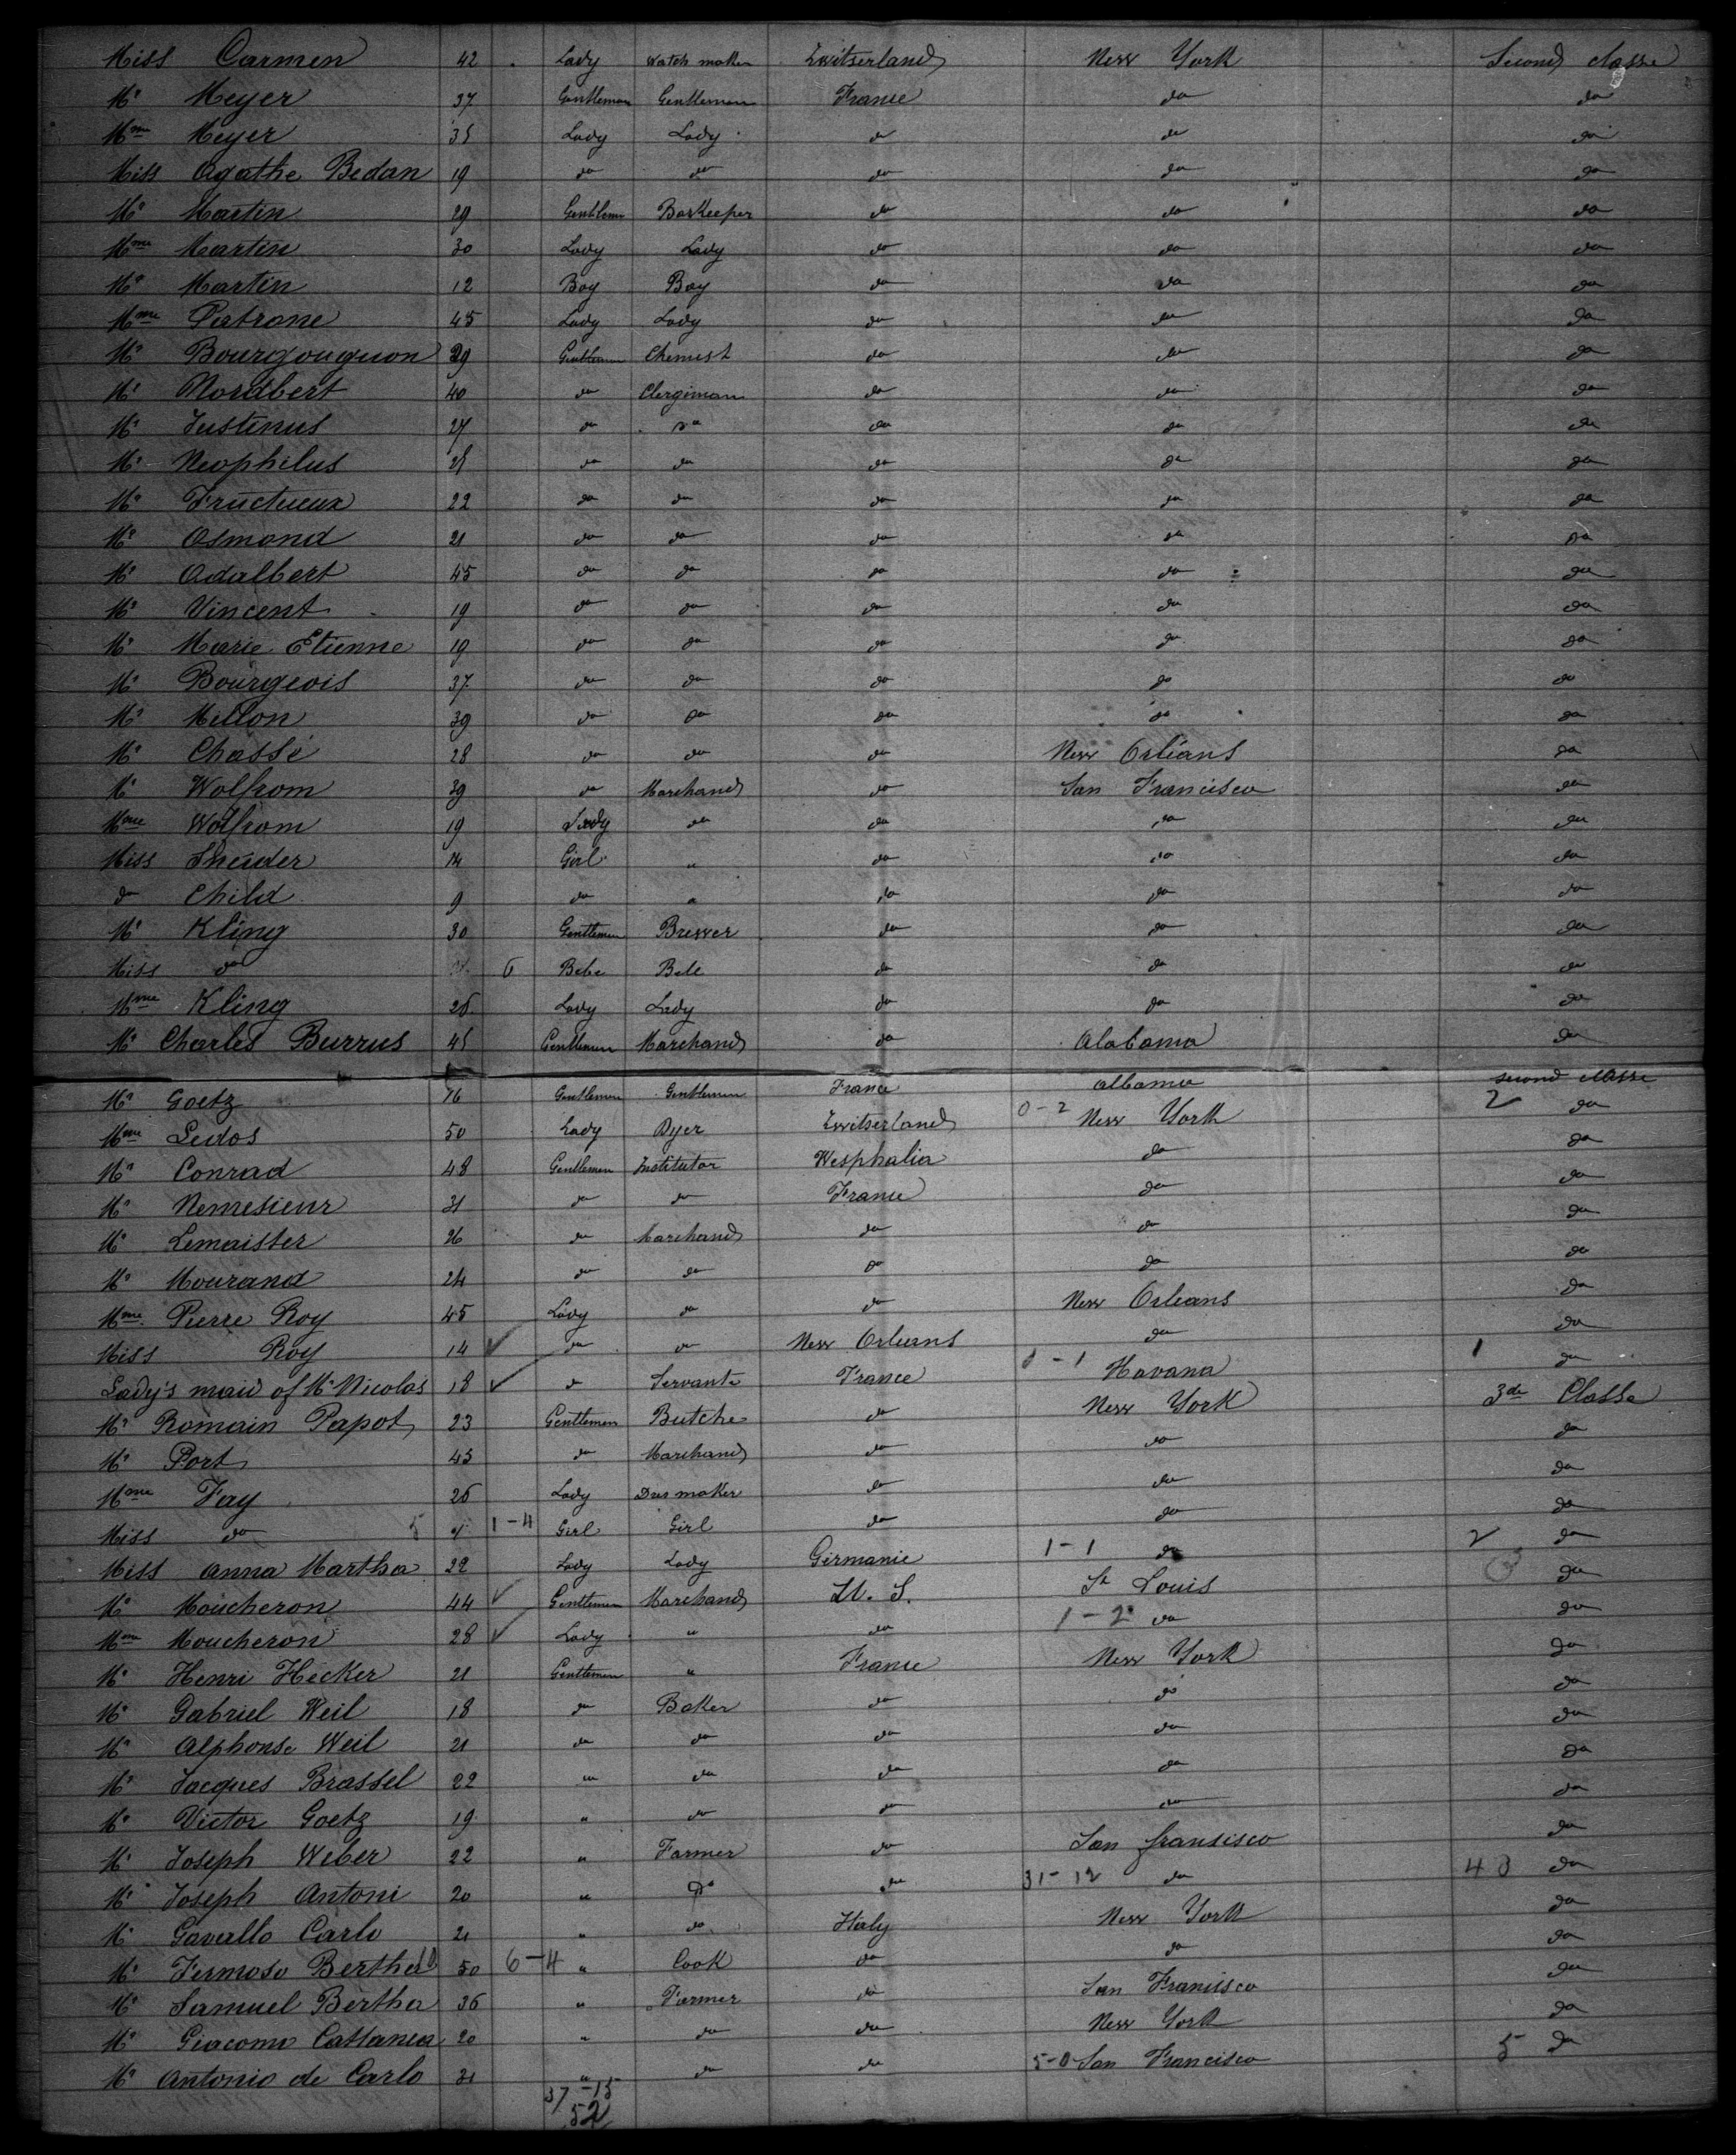 Miss Carmen 42 Lady Watch maker Zwitserland New York Second classe
Mr Meyer 37 Gentleman Gentleman France do do
Mme Meyer 35 Lady Lady do do do
Miss Agathe Bedan 19 do do do do do
Mr Martin 29 Gentleman BarKeeper do do do
Mme Martin 30 Lady Lady do do do
Mr Martin 12 Boy Boy do do do
Mme Patrone 45 Lady Lady do do do
Mr Bourgougnon 29 Gentleman Chemist do do do
Mr Nordbert 40 do Clergiman do do do
Mr Justinus 27 do do do do do
Mr Neophilus do do do do do
Mr Fructueux 22 do do do do do
Mr Osmond 21 do do do do do
Mr Adalbert 45 do do do do do
Mr Vincent 19 do do do do do
Mr Marie Etienne 19 do do do do do
Mr Bourgeois 37 do do do do do
Mr Millon 39 do do do do do
Mr Chassé 28 do do do New Orléans do
Mr Wolfrom 39 do Marchand do San Francisco do
Mme Wolfrom 19 Lady do do do do
Miss Sneider 14 Girl " do do do
do Child 9 do " do do do
Mr Kling 30 Gentlemen Brewer do do do
Miss do 6 Bebe Bebe do do do
Mme Kling 26 Lady Lady do do do
Mr Charles Burrus 45 Gentlemen Marchand do Alabama do
Mr Goetz 76 Gentlemen Gentlemen France Albama second classe
Mme Ledos 50 Lady Dyer Zwitserland 0-2 New York 2 do
Mr Conrad 48 Gentlemen Institutor Wesphalia do do
Mr Nemesieur 31 do do France do do
Mr Lemaister 26 do Marchand do do do
Mr Mourand 24 do do do do do
Mme Pierre Roy 45 Lady do do New Orleans do
Miss Roy 14 ✓ do do New Orleans do do
Lady's maid of Mr Nicolas 18 ✓ do Servante France 1-1 Havana 1 do
Mr Romain Papot 23 Gentlemen Butcher do New York 3de Classe
Mr Port 45 do Marchand do do do
Mme Fay 26 Lady Dres maker do do do
Miss do 5 1-4 Girl Girl do do do
Miss Anna Martha 22 Lady Lady Germanie 1-1 do 2 do
Mr Moucheron 44 ✓ Gentlemen Marchand U. S. St Louis do
Mme Moucheron 28 ✓ Lady " do 1-2 do do
Mr Henri Hecker 21 Gentlemen " France New York do
Mr Gabriel Weil 18 do Baker do do do
Mr Alphonse Weil 21 do do do do do
Mr Jacques Brassel 22 " do do do do
Mr Victor Goetz 19 " do do do do
Mr Joseph Weber 22 " Farmer do San fransisco do
Mr Joseph Antoni 20 " do do 31-12 do 43 do
Mr Gavallo Carlo 21 " do Italy New York do
Mr Fermoso Bertha 50 6-4 " Cook do do do
Mr Samuel Bertha 36 " Farmer do San Francisco do
Mr Giacomo Cattanea 20 " do do New York do
Mr Antonio de Carlo 21 " do do 5-0 San Francisco 5 do
37-15
52